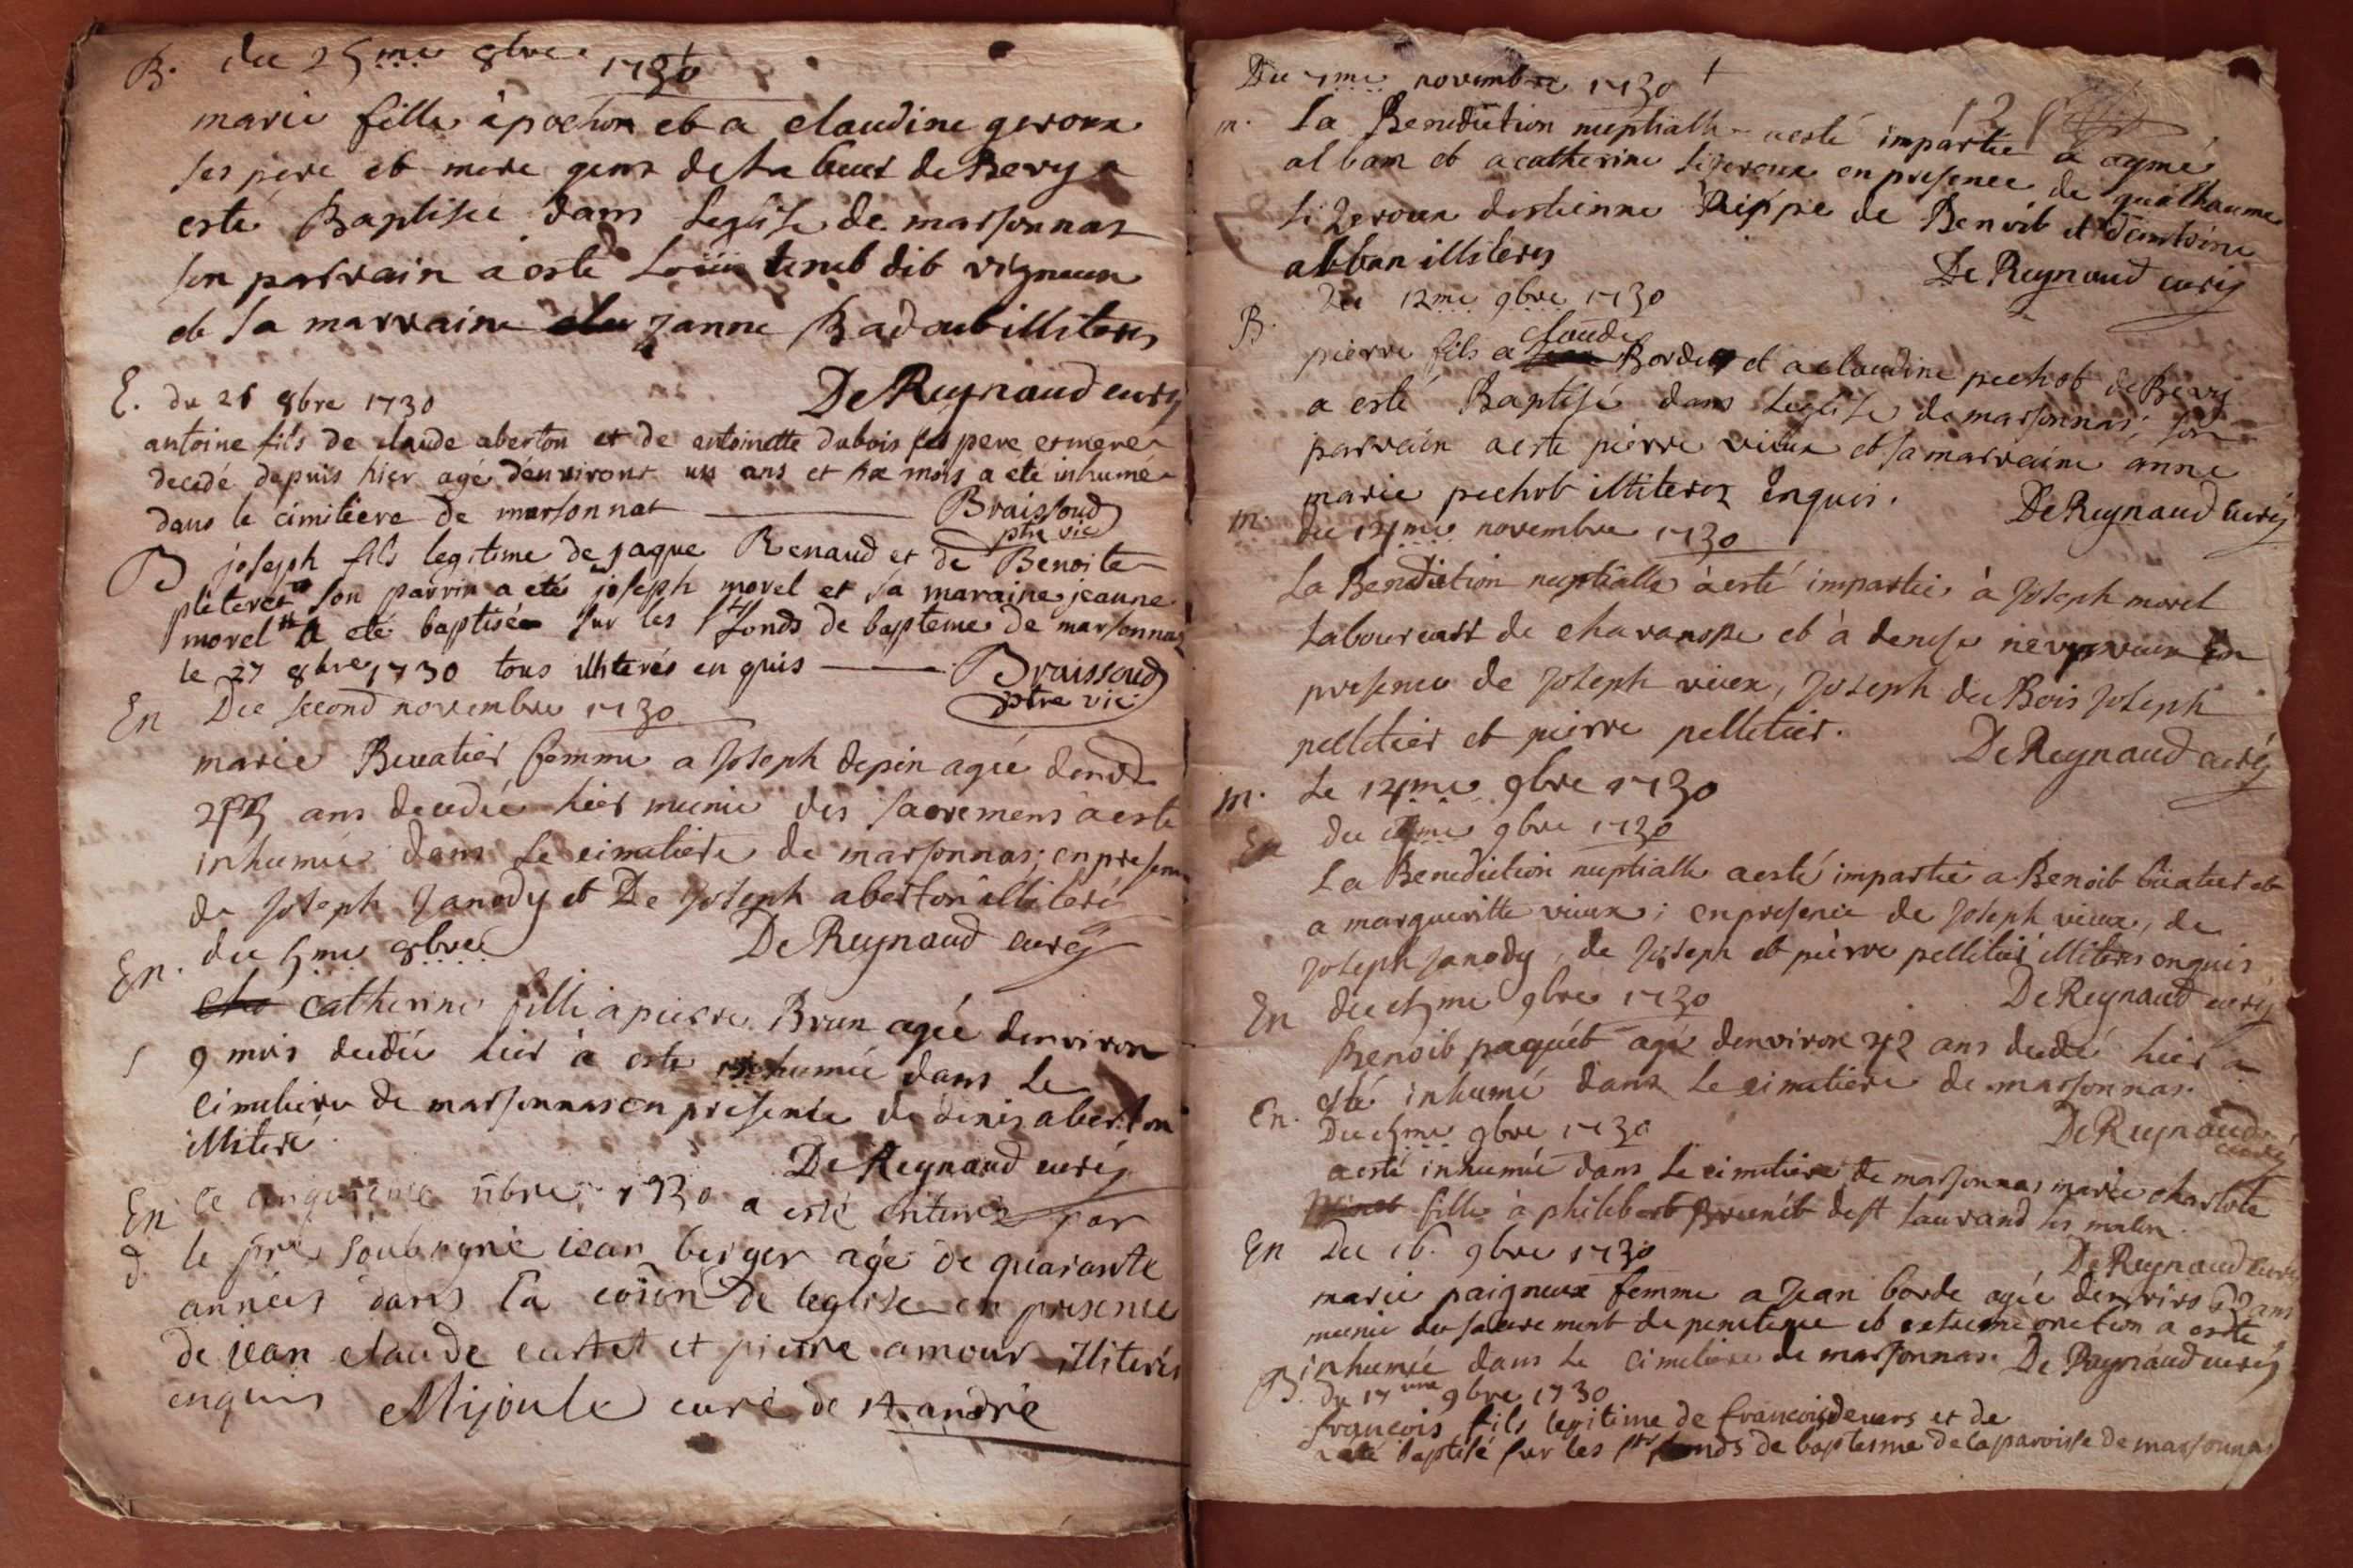 B. du 25me 8bre 1730
marie fille à pochon et a claudine geroux
ses pere et mere gens de de Bevy a
esté Baptisée dans Leglise de marsonnas
son parrain a esté dit vigneux
et sa marraine Janne Badoub illiteres
De Reynaud curé
E. du 26 8bre 1730
antoine fils de claude aberton et de antoinette dubois ses pere et mere
decedé depuis hier agé denviront un ans et six mois a eté inhumé
dans le cimitiere de marsonnat
Braissoud ptre vic
B joseph fils legitime de jaque Renaud et de Benoite
pleteret son parrin a eté joseph morel et sa maraine jeanne
morel a eté baptisée sur les fonds de bapteme de marsonnas
le 27 8bre 1730 tous illiterés enquis
Braissoud ptre vic
En Du second novembre 1730
marie Buatier femme a Joseph depin agée
ans decedée hier munie des sacremens a esté
inhumée dans Le cimetiere de marsonnas; en presen
de Joseph Janody et De Joseph aberton illiteré
De Reynaud curé
En. du 5me 8bre
catherine fille a pierre Brun agée denviron
9 mois decedée hier a esté inhumée dans Le
cimetiere de marsonnas en presence de denis aberton
illiteré.
De Reynaud curé
En Ce cinquieme 1730 a esté enterré par
d. le pre soubsigné jean berger agé de quarante
années dans la de leglise en presence
de jean claude cartet et pierre amour illiterés
enquis Mijoule curé de st andré
Du 7me novembre 1730
12
m. La Benediction nuptialle a esté impartie a aymé
alban et a catherine Ligeroux en presence de guilhaume
Ligeroux destienne Rippe de Benoit et dantoine
alban illiteres
De Reynaud curé
B. du 12me 9bre 1730
pierre fils a claude Borde et a claudine pechot de Bevy
a esté Baptisé dans Leglise de marsonnas; son
parrain a esté pierre vieux et sa marraine anne
marie pechot illiteres Enquis.
De Reynaud curé
m. du 14me novembre 1730
La Benediction nuptialle a esté impartie à Joseph morel
Laboureur de et à denise en
presence de Joseph vieux, Joseph du Bois Joseph
pelletier et pierre pelletier.
De Reynaud curé
m. Le 14me 9bre 1730
En du 9bre 1730
La Benediction nuptialle a esté impartie a Benoit buatier et
a margueritte vieux; en presence de Joseph vieux, de
Joseph Janody, de Joseph et pierre pelletier illiteres enquis
De Reynaud curé
En du 15me 9bre 1730
Benoit paquet agé denviron 42 ans decedé hier a
esté inhumé dans Le cimetiere de marsonnas.
De Reynaud curé
En. Du 15me 9bre 1730
a esté inhumée dans Le cimetiere de marsonnas marie charlote
fille à philibert Brunet de st Laurand les
De Reynaud curé
En Du 16. 9bre 1730
marie paigneux femme a Jean borde agée denviro ans
munie du sacrement de penitence et extreme onction a esté
inhumée dans Le cimetiere de marsonnas. De Reynaud curé
B. du 17me 9bre 1730
francois fils legitime de francois devers et de
a eté baptisé sur les fonds de baptesme de la paroisse de marsonnas